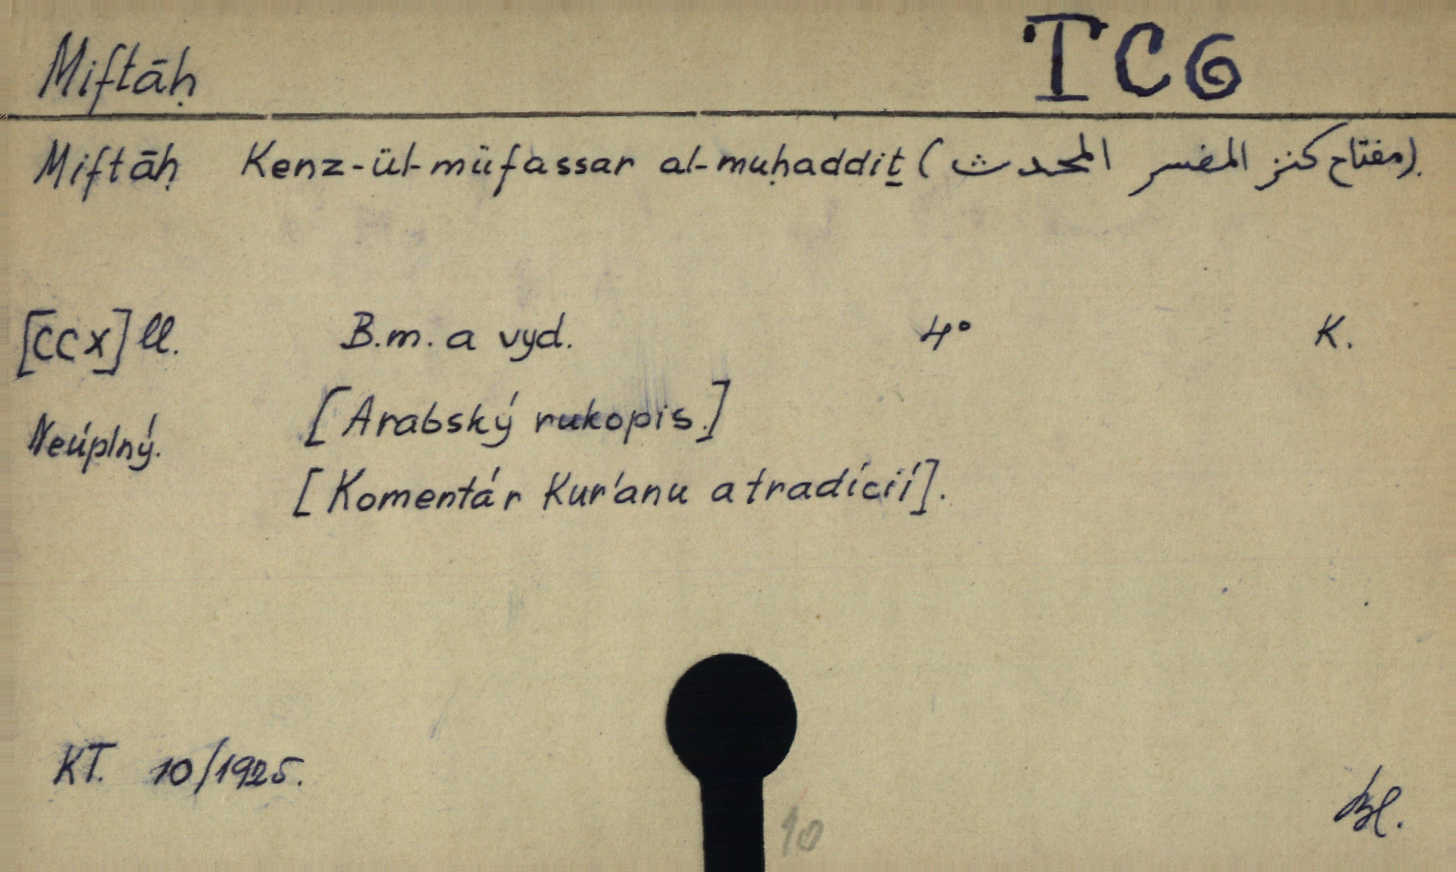 Miftāḥ TC6
Miftāḥ Kenz-ül-müfassar al-muḥaddiṯ (مفتاح كنز المفسر المحدث).
[CCX] ll. B.m. a vyd. 4° K.
Neúplný. [Arabský rukopis.]
[Komentár Kur'anu a tradícií].
KT. 10/1925.
10